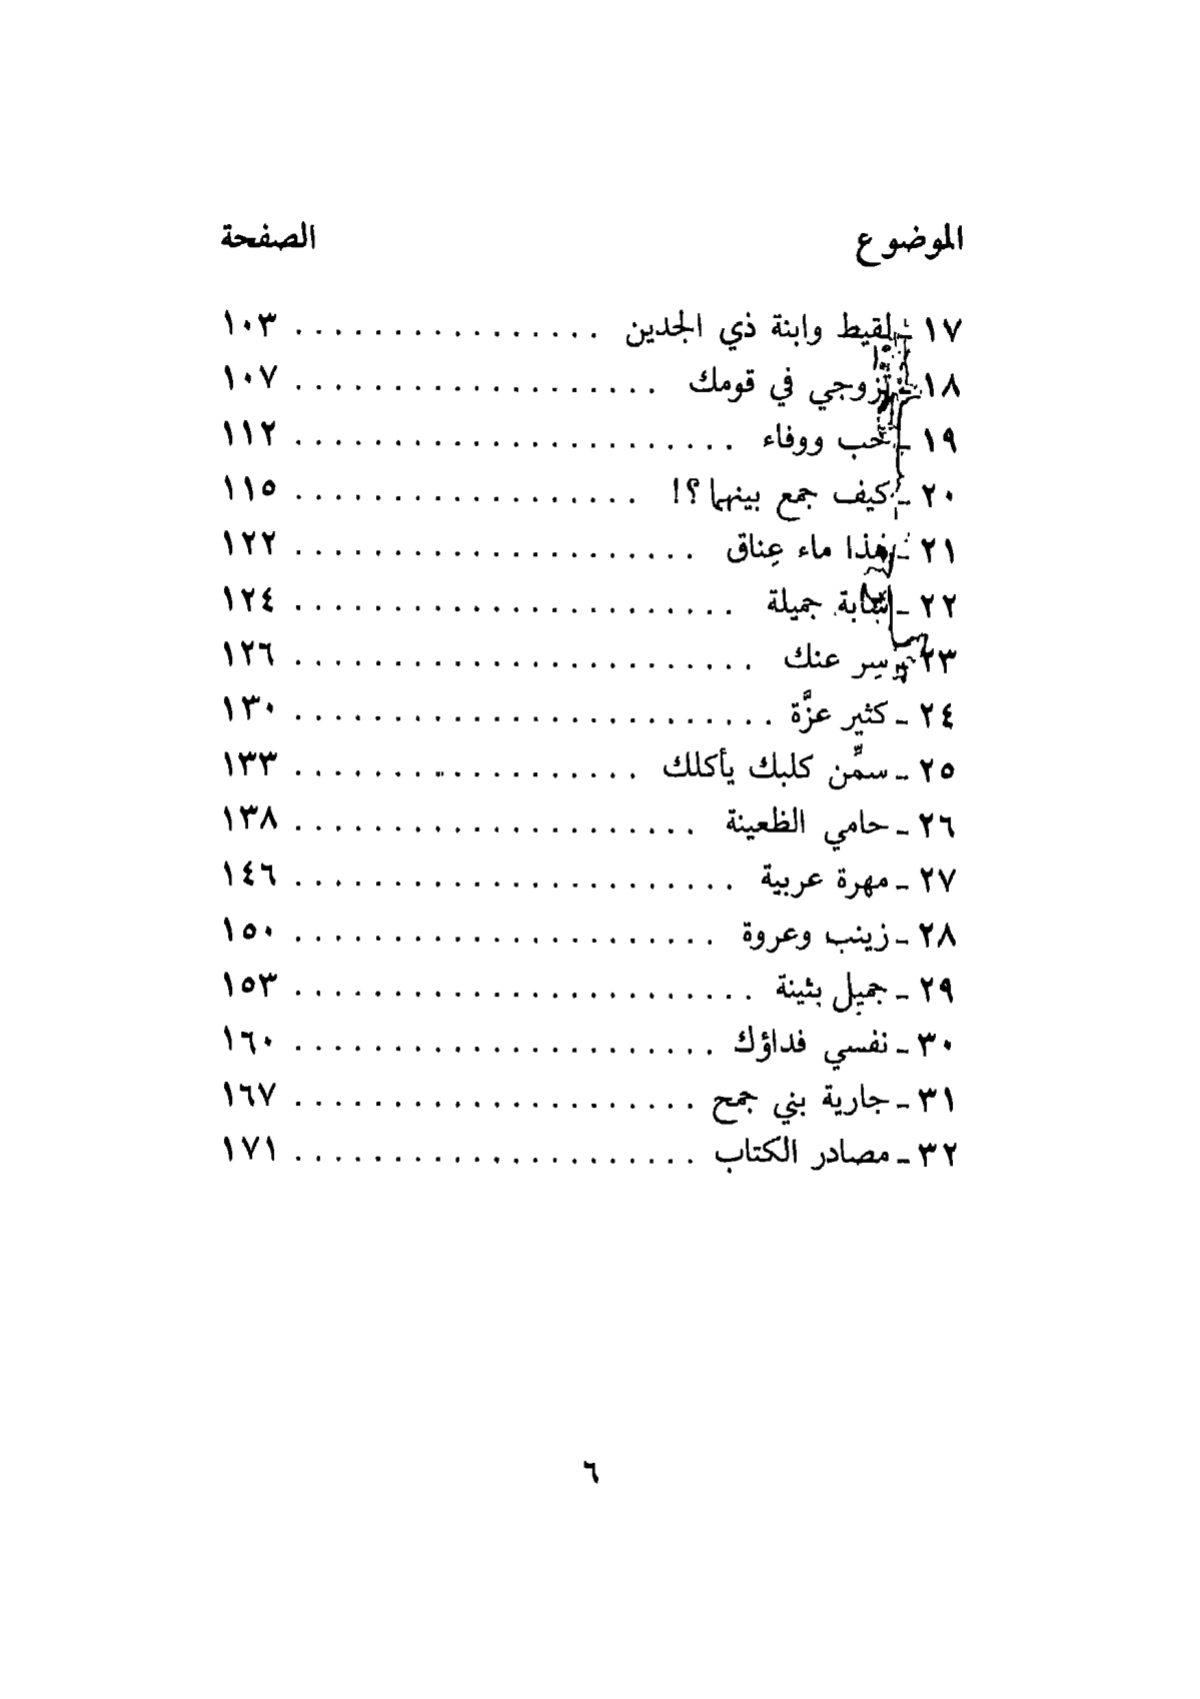 الموضوع الصفحة
١٧ - لقيط وابنة ذي الجدين . . . . . . . . . . . . . . . . ١٠٣
١٨ - تزوجي في قومك . . . . . . . . . . . . . . . . . . . ١٠٧
١٩ - حب ووفاء . . . . . . . . . . . . . . . . . . . . . . . ١١٢
٢٠ - كيف جمع بينهما؟! . . . . . . . . . . . . . . . . . . ١١٥
٢١ - هذا ماء عِناق . . . . . . . . . . . . . . . . . . . . . ١٢٢
٢٢ - شابة جميلة . . . . . . . . . . . . . . . . . . . . . . . ١٢٤
٢٣ - سِر عنك . . . . . . . . . . . . . . . . . . . . . . . . ١٢٦
٢٤ - كثير عزَّة . . . . . . . . . . . . . . . . . . . . . . . . . ١٣٠
٢٥ - سمِّن كلبك يأكلك . . . . . . . . . . . . . . . . . . ١٣٣
٢٦ - حامي الظعينة . . . . . . . . . . . . . . . . . . . . . ١٣٨
٢٧ - مهرة عربية . . . . . . . . . . . . . . . . . . . . . . . ١٤٦
٢٨ - زينب وعروة . . . . . . . . . . . . . . . . . . . . . . ١٥٠
٢٩ - جميل بثينة . . . . . . . . . . . . . . . . . . . . . . . . ١٥٣
٣٠ - نفسي فداؤك . . . . . . . . . . . . . . . . . . . . . . ١٦٠
٣١ - جارية بني جمح . . . . . . . . . . . . . . . . . . . . . ١٦٧
٣٢ - مصادر الكتاب . . . . . . . . . . . . . . . . . . . . . ١٧١
٦